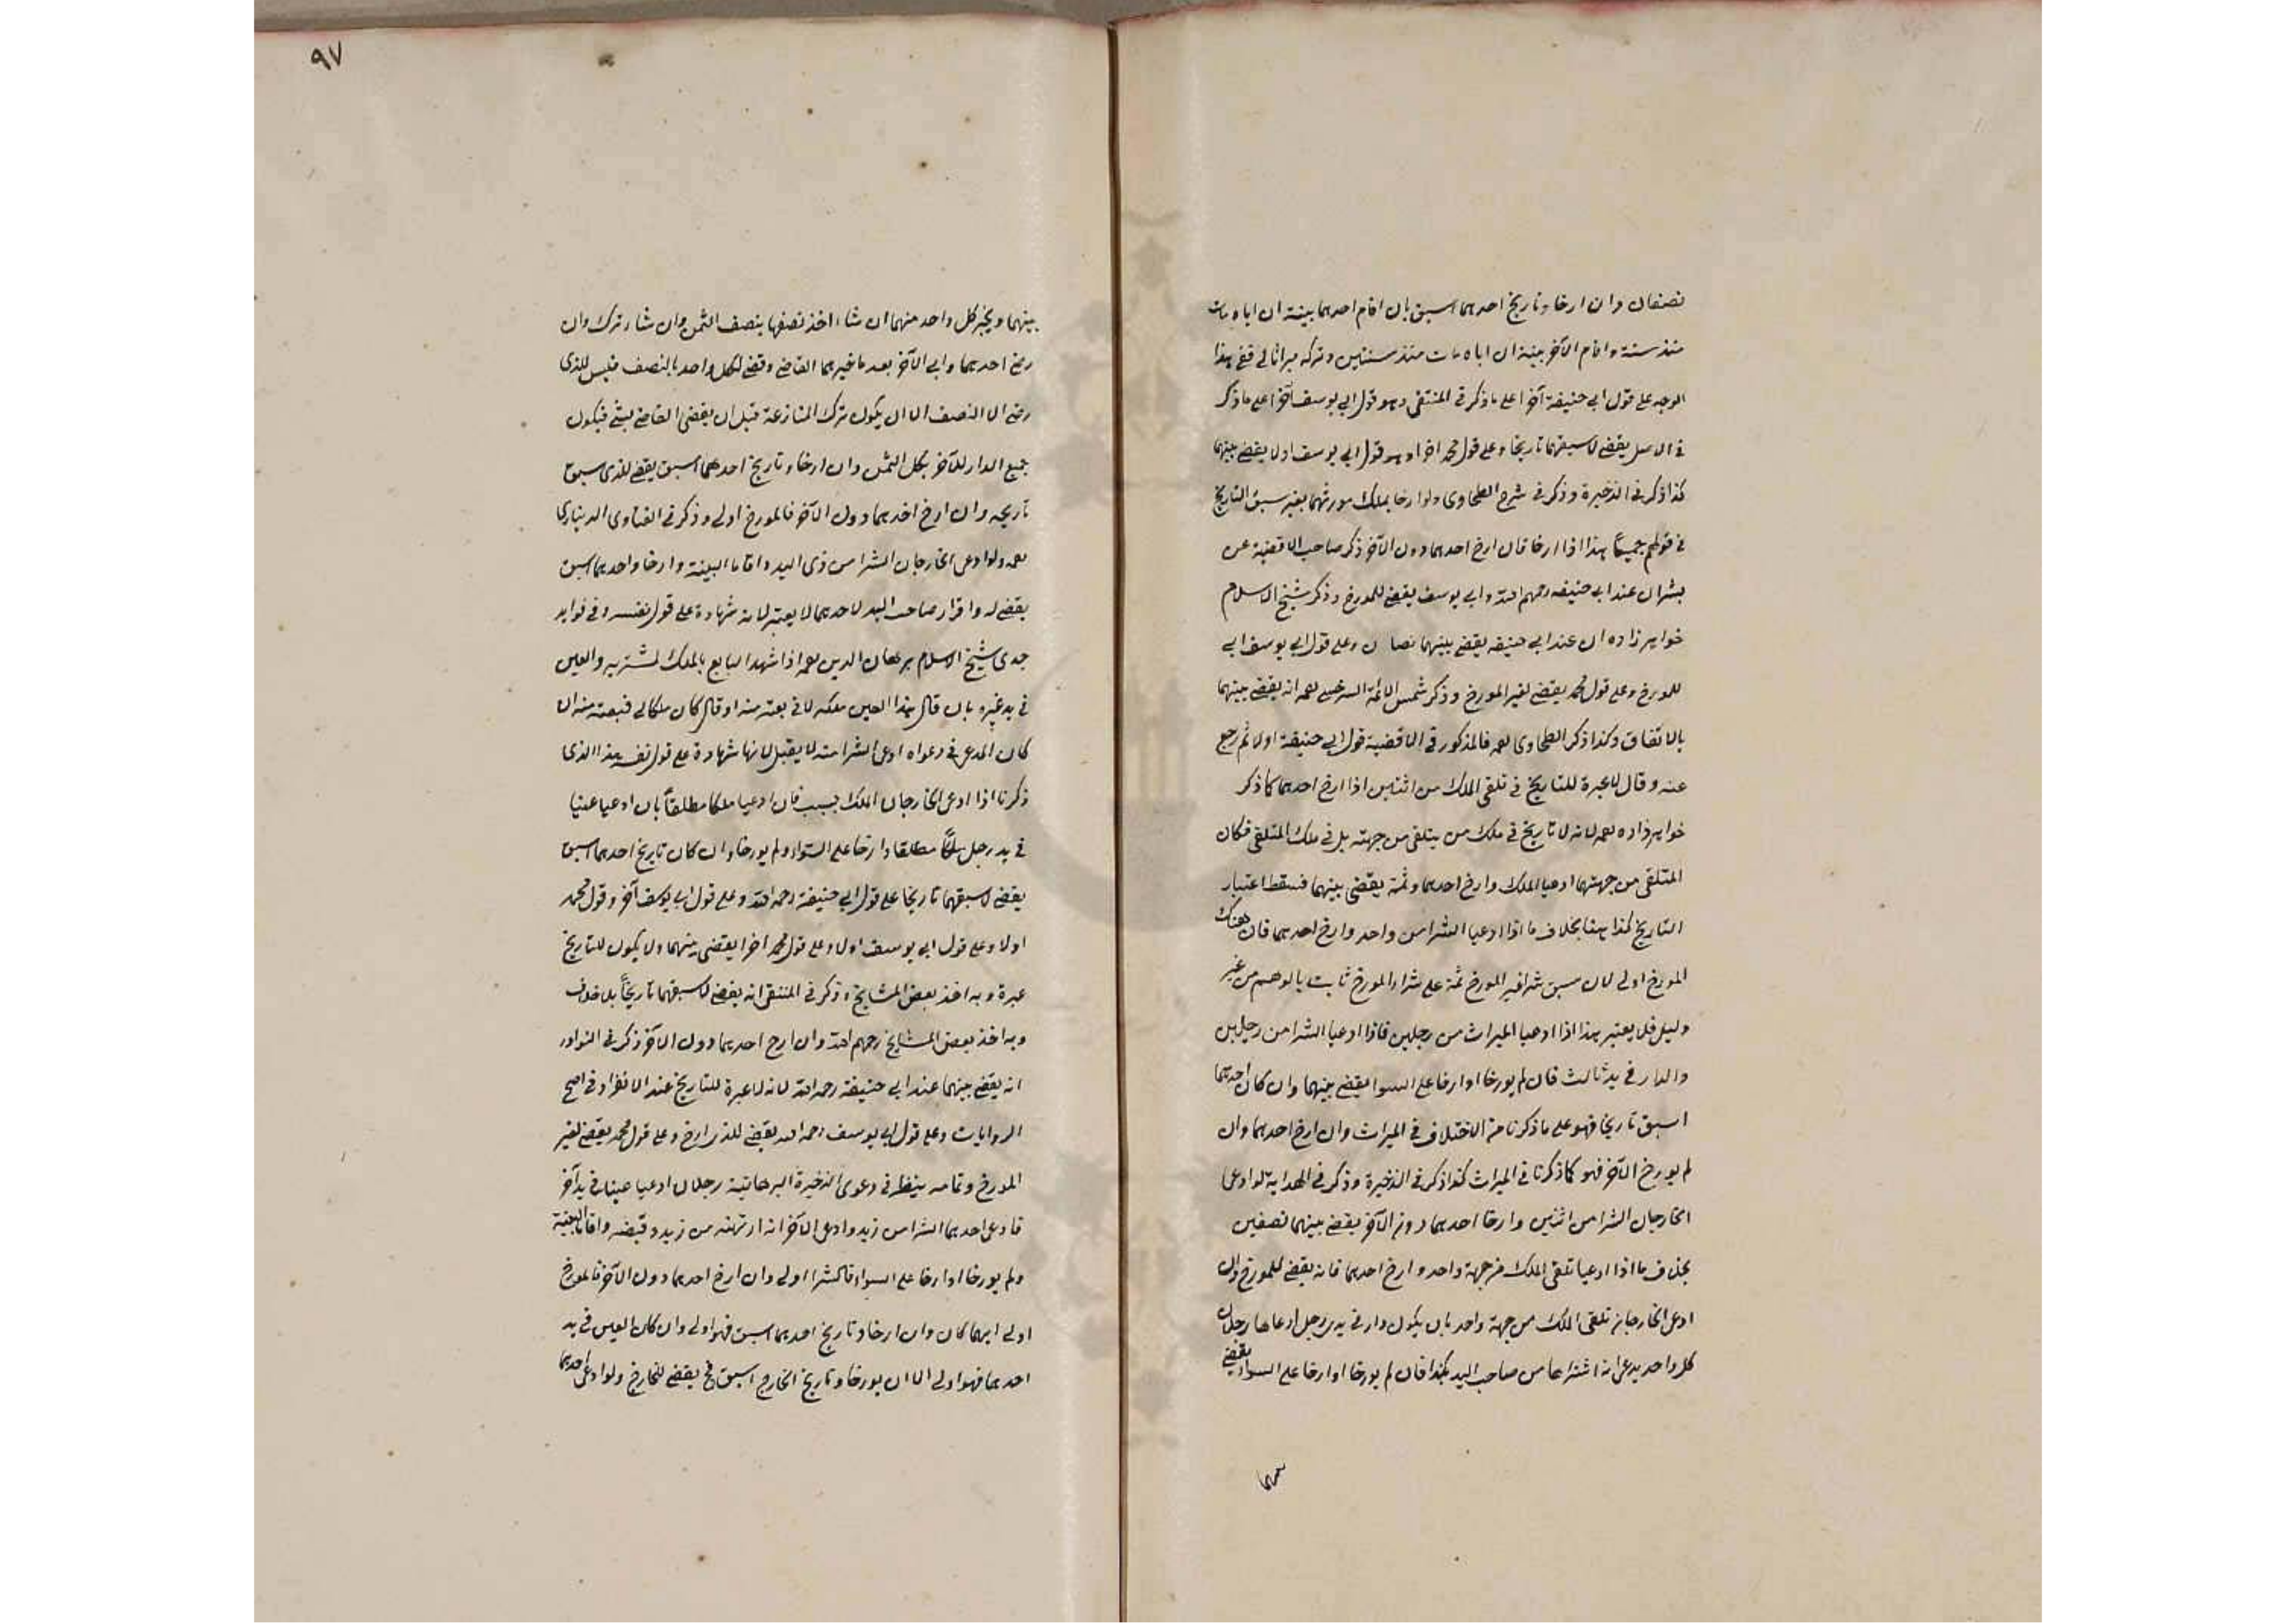 نصفان وان ارخا وتاريخ احدهما اسبق بان اقام احدهما بينة ان اباه مات
منذ سنة واقام الآخر بينة ان اباه مات منذ سنتين وتركه ميراثا لي ففي هذا
الوجه على قول ابي حنيفة آخرا على ما ذكر في المنتقى وهو قول ابي يوسف آخرا على ما ذكر
في الاصل يقضى لاسبقهما تاريخا وعلى قول محمد اخرا وهو قول ابي يوسف اولا يقضى بينهما
كذا ذكر في الذخيرة وذكر في شرح الطحاوى ولو ارخا بملك مورثهما يعتبر سبق التاريخ
في قولهم جميعًا هذا اذا ارخا فان ارخ احدهما دون الآخر ذكر صاحب الاقضية عن
بشر ان عند ابي حنيفه رحمهم الله وابي يوسف يقضى للمورخ وذكر شيخ الاسلام
خواهر زاده ان عند ابي حنيفه يقضى بينهما نصا ن وعلى قول ابي يوسف ابي
للمورخ وعلى قول محمد يقضى لغير المورخ وذكر شمس الائمة السرخسى رحمه انه يقضى بينهما
بالاتفاق وكذا ذكر الطحاوى رحمه فالمذكور في الاقضية قول ابي حنيفة اولا ثم رجع
عنه وقال لا عبرة للتاريخ في تلقى الملك من اثنين اذا ارخ احدهما كما ذكر
خواهر زاده رحمه لانه لا تاريخ في ملك من يتلقى من جهته بل في ملك المتلقى فكان
المتلقى من جهتهما ادعيا الملك وارخ احدهما وثمة يقضى بينهما فسقط اعتبار
التاريخ كذا هنا بخلاف ما اذا ادعيا الشرا من واحد وارخ احدهما فان هناك
المورخ اولى لان سبق شرا غير المورخ ثمة على شراء المورخ ثابت بالوهم من غير
دليل فلا يعتبر هذا اذا ادعيا الميراث من رجلين فاذا ادعيا الشرا من رجلين
والدار في يد ثالث فان لم يورخا او ارخا على السوا يقضى بينهما وان كان احدهما
اسبق تاريخا فهو على ما ذكرنا من الاختلاف في الميراث وان ارخ احدهما وان
لم يورخ الآخر فهو كما ذكرنا في الميراث كذا ذكر في الذخيرة وذكر في الهداية لو ادعى
الخارجان الشرا من اثنين وارخا احدهما دون الآخر يقضى بينهما نصفين
بخلاف ما اذا ادعيا تلقى الملك من جهة واحد وارخ احدهما فانه يقضى للمورخ وان
ادعى الخارجان تلقى الملك من جهة واحد بان يكون دار في يدي رجل ادعاها رجلان
كل واحد يدعى انه اشتراها من صاحب اليد بكذا فان لم يورخا او ارخا على السواء يقضى
بينهما
٩٧
بينهما ويخير كل واحد منهما ان شاء اخذ نصفها بنصف الثمن وان شاء ترك وان
رضى احدهما وابى الآخر بعد ما خيرهما القاضى وقضى لكل واحد بالنصف فليس للذى
رضى الا النصف الا ان يكون ترك المنازعة قبل ان يقضى القاضى بشئ فيكون
جميع الدار للآخر بكل الثمن وان ارخا وتاريخ احدهما اسبق يقضى للذى سبق
تاريخه وان ارخ احدهما دون الآخر فالمورخ اولى وذكر في الفتاوى الدينارى
رحمه ولو ادعى الخارجان الشرا من ذى اليد واقاما البينة وارخا واحدهما اسبق
يقضى له واقرار صاحب اليد لاحدهما لا يعتبر لانه شهادة على قول نفسه وفي فوايد
جدى شيخ الاسلام برهان الدين رحمه اذا شهد البايع بالملك لمشتريه والعين
في يد غيره بان قال هذا العين ملكه لانى بعته منه او قال كان ملكا لي فبعته منه ان
كان المدعى في دعواه ادعى الشرا منه لا يقبل لانها شهادة على قول نفسه هذا الذى
ذكرنا اذا ادعى الخارجان الملك بسبب فان ادعيا ملكا مطلقاً بان ادعيا عينا
في يد رجل ملكًا مطلقا وارخا على السواء ولم يورخا وان كان تاريخ احدهما اسبق
يقضى لاسبقهما تاريخا على قول ابي حنيفة رحمه الله وعلى قول ابي يوسف آخر وقول محمد
اولا وعلى قول ابي يوسف اولا وعلى قول محمد اخرا يقضى بينهما ولا يكون للتاريخ
عبرة وبه اخذ بعض المشايخ وذكر في المنتقى انه يقضى لاسبقهما تاريخاً بلا خلاف
وبه اخذ بعض المشايخ رحمهم الله وان ارخ احدهما دون الآخر ذكر في النوادر
انه يقضى بينهما عند ابي حنيفة رحمه الله لانه لا عبرة للتاريخ عند الانفراد في اصح
الروايات وعلى قول ابي يوسف رحمه الله يقضى للذى ارخ وعلى قول محمد يقضى لغير
المورخ وتمامه ينظر في دعوى الذخيرة البرهانية رجلان ادعيا عينا في يد آخر
فادعى احدهما الشرا من زيد وادعى الآخر انه ارتهنه من زيد وقبضه واقاما البينة
ولم يورخا او ارخا على السواء فالشرا اولى وان ارخ احدهما دون الآخر فالمورخ
اولى ايهما كان وان ارخا وتاريخ احدهما اسبق فهو اولى وان كان العين في يد
احدهما فهو اولى الا ان يورخا وتاريخ الخارج اسبق فح يقضى للخارج ولو ادعى احدهما